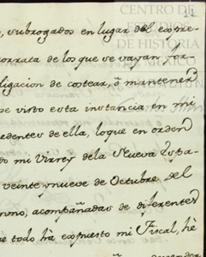 CENTRO DE
ESTUDIOS
DE HISTORIA
, subrogados en lugar del expre-
orrata de los que se vayan for-
ligacion de costear, ó mantener
e visto esta instancia en mi
edentes de ella, lo que en orden
do mi Virrey de la Nueva Espa-
veinte y nueve de Octubre del
nono, acompañadas de diferentes
e todo há expuesto mi Fiscal, hé